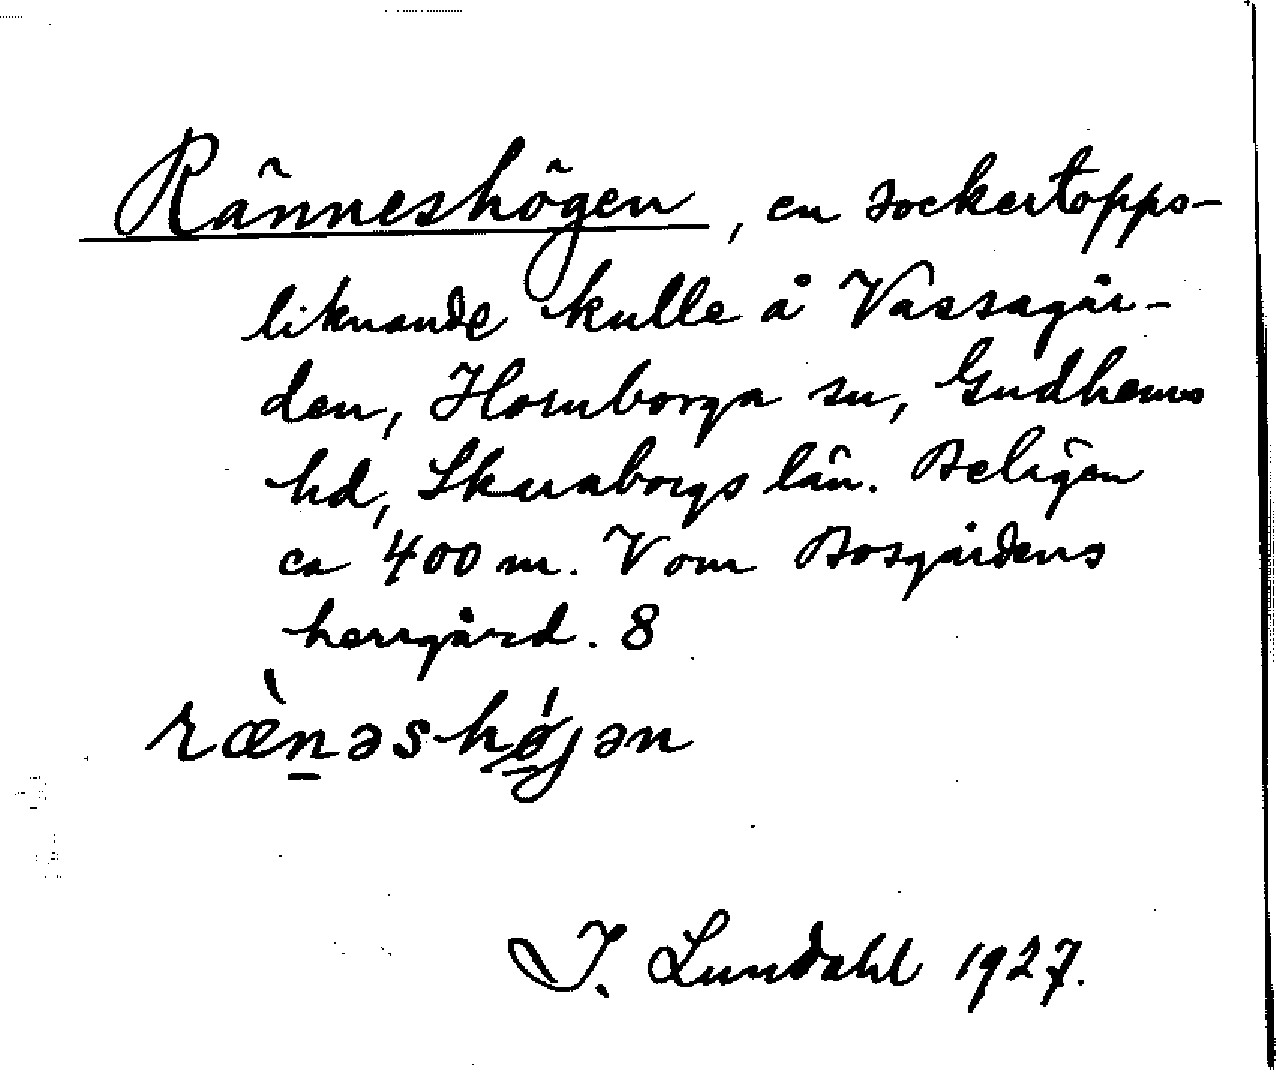 Ränneshögen, en sockertopps-
liknande kulle å Vassagår-
den, Hornborga sn, Gudhems
hd, Skaraborgs län. Belägen
ca 400 m. V om Bosgårdens
herrgård. 8
ræ̀n̲əshǿ̲jən
I. Lundahl 1927.